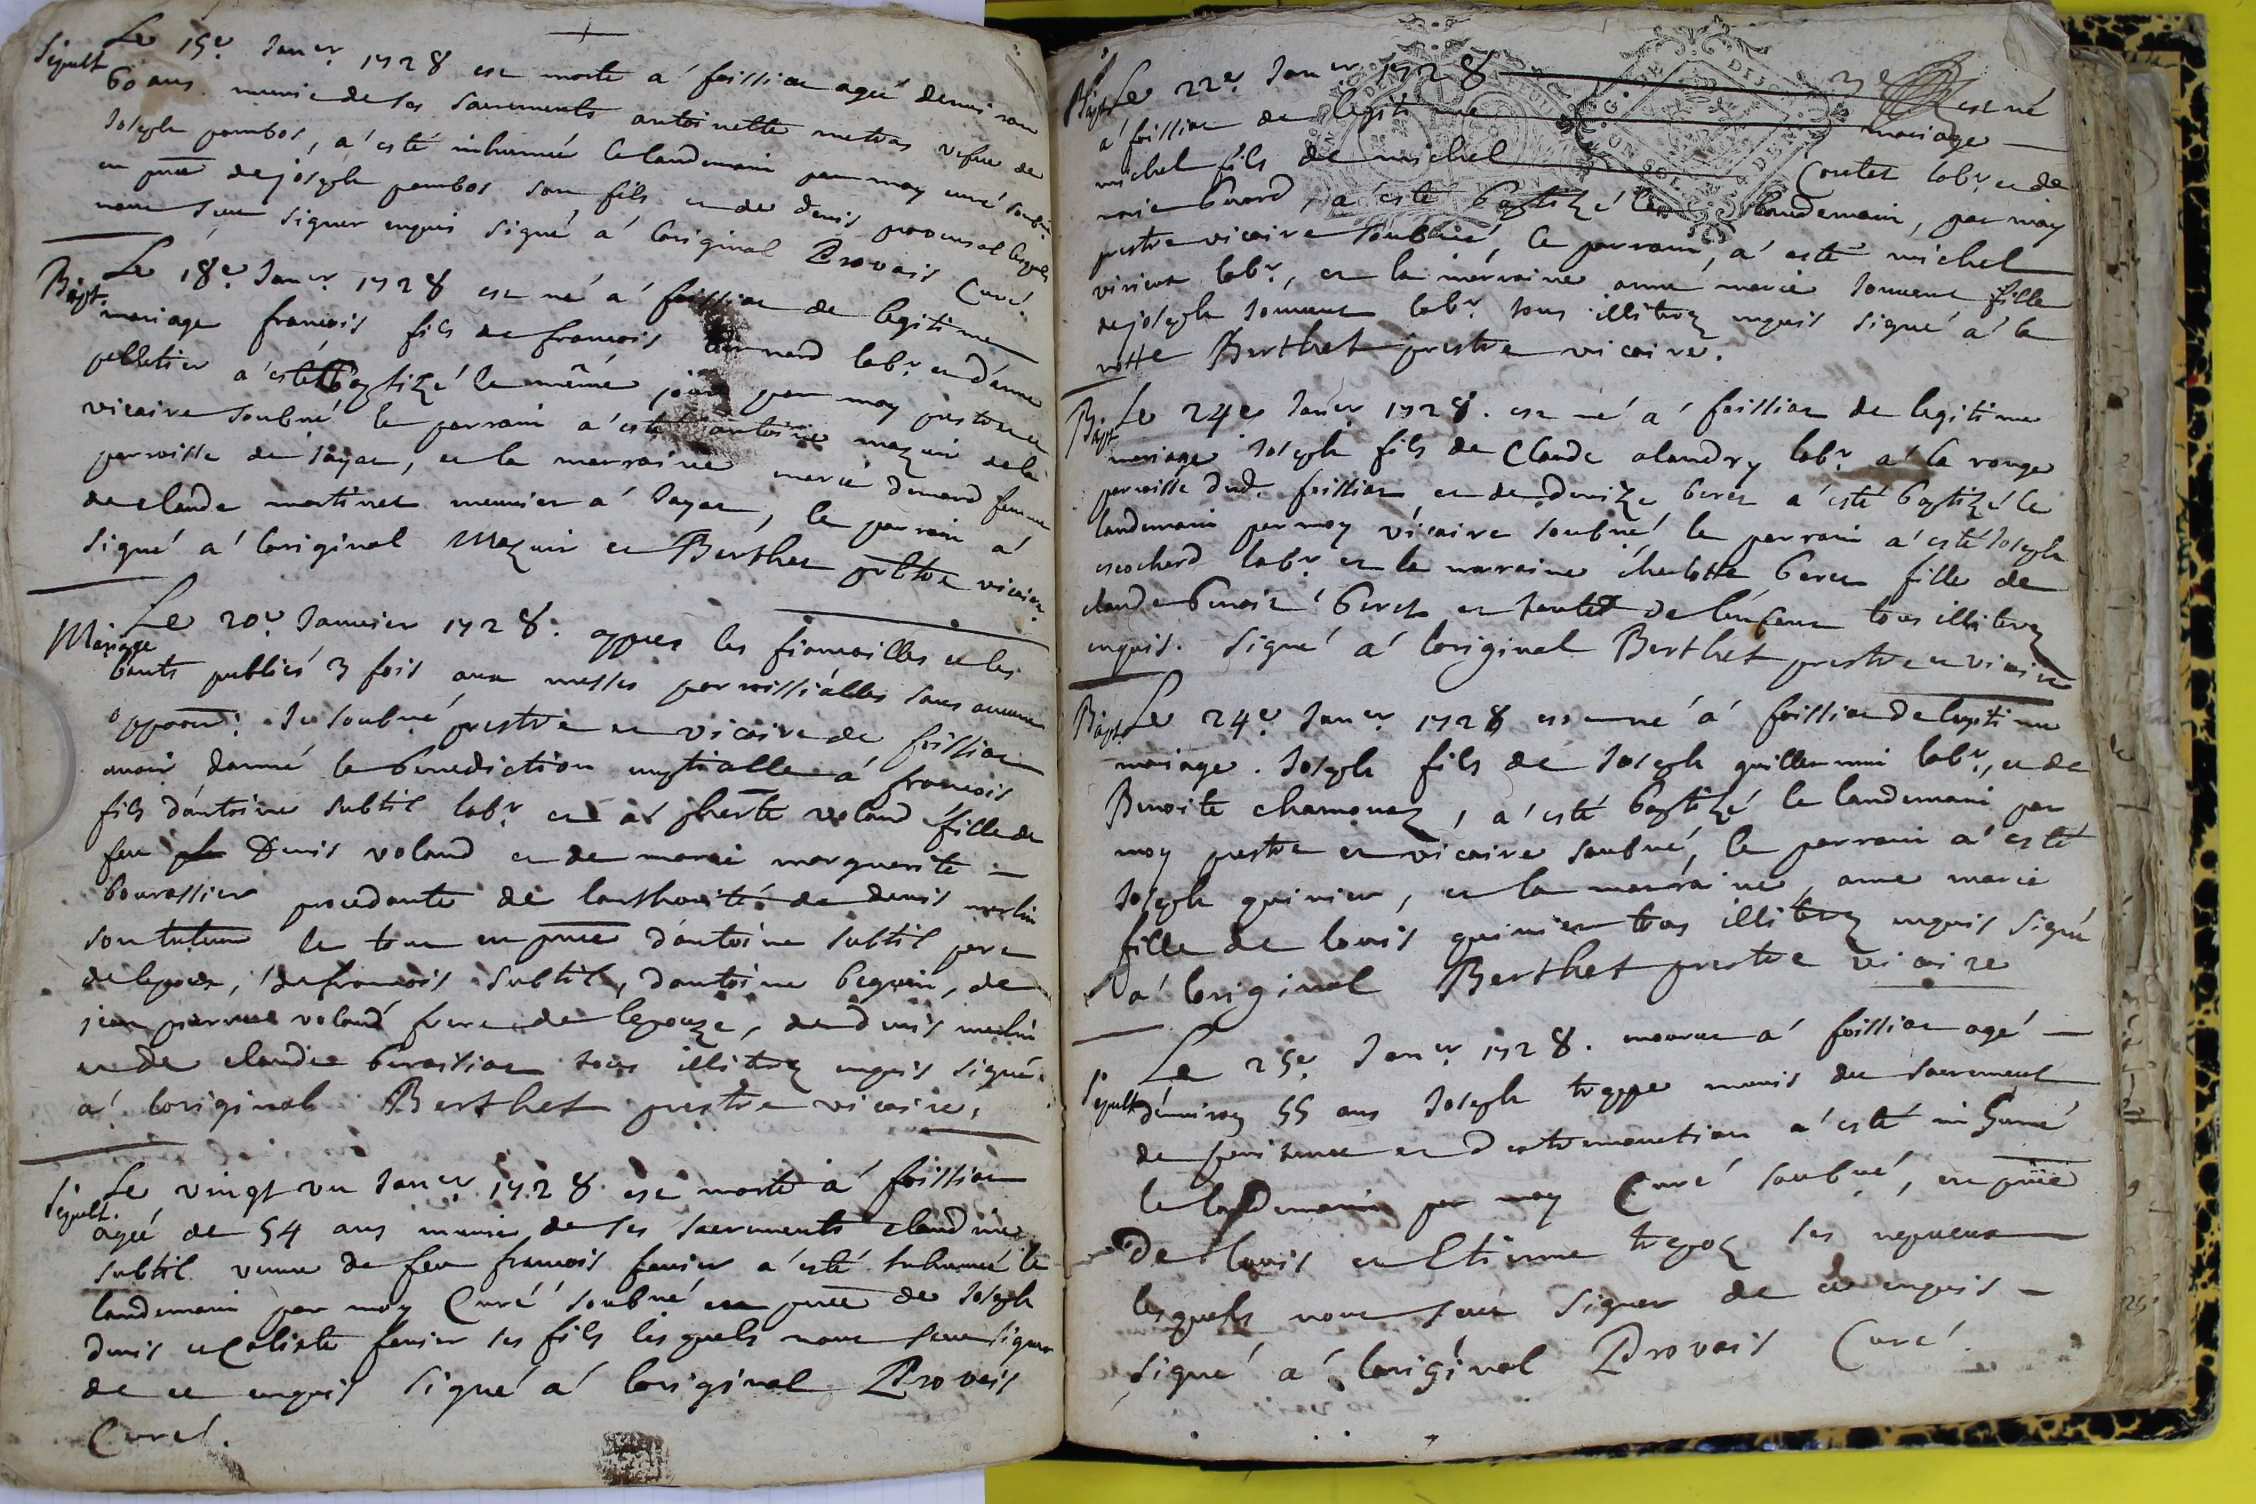 Sepult Le 15e. Janer. 1728 est morte a foissiac ageé denviron
60 ans munie de ses sacrements antoinette metras vefue de
Joseph pambos, a esté inhumeé le landemain par moy curé soubne.
en pnce de joseph pambos son fils et de denis provensal lesquels
nont sceu signer enquis signé a loriginal Provais Curé.
Bapt. Le 18e. Janer. 1728 est né a foissiac de legitime
mariage francois fils de francois bernard labr. et danne
pelletier a esté baptizé le même jour par moy prestre et
vicaire soubné le parrain a esté antoine mazuir de la
parroisse de Jayac, et la marraine marie Donard femme
de claude martinet meunier a Jayac, le parrain a
signé a loriginal Mazuir et Berthet pbtre vicaire.
Mariage Le 20e. Janvier 1728. appres les fiancailles et les
bants publiés 3 fois aux messes parroissialles sans aucune
oppoon. Je soubné prestre et vicaire de foissiac
avoir donné la benediction nuptialle a francois
fils dantoine subtil labr. et a pherte voland fille de
feu Denis voland et de marie marguerite
bourassier procedante de lauthorité de denis merlin
son tuteur le tout en pnce dantoine subtil pere
de lepoux, de francois subtil, dantoine beguin, de
jean pierre voland frere de lepouze, de denis merlin
et de claude tous illitrez enquis signé
a loriginal Berthet prestre vicaire.
Sepult. Le vingt un Janer. 1728. est morte a foissiac
ageé de 54 ans munie de ses sacrements claudine
subtil veuve de feu francois favier a esté inhumeé le
landemain par moy Curé soubné en pnce de Joseph
denis et Caliste favier ses fils lesquels nont sceu signer
de ce enquis signé a loriginal Provais
Curé.
Bapt. Le 22e. Janer. 1728 est né
a foissiac de legitime mariage
michel fils de michel Coutet labr. et de
marie buard, a esté baptizé le landemain, par moy
prestre vicaire soubné, le parrain, a esté michel
labr., et la marraine anne marie fille
de joseph labr. tous illitrez enquis signé a la
notte Berthet prestre vicaire.
Bapt. Le 24e Janer. 1728. est né a foissiac de legitime
mariage Joseph fils de Claude alandry labr. a la range
parroisse dud. foissiac et de denize beret a esté baptizé le
landemain par moy vicaire soubné le parrain a esté Joseph
escocherd labr. et la marraine charlotte beret fille de
claude benoit beret et tante de lenfant tous illitrez
enquis. signé a loriginal Berthet prestre et vicaire
Bapt. Le 24e. Janer. 1728 est né a foissiac de legitime
mariage. Joseph fils de Joseph guillermin labr., et de
Benoite chamouaz, a esté baptizé le landemain par
moy prestre et vicaire soubné, le parrain a esté
Joseph guinier, et la marraine, anne marie
fille de louis guinier tous illitrez enquis signé
a loriginal Berthet prestre vicaire
Sepult. Le 25e. Janer. 1728. mourut a foissiac agé
denviron 55 ans Joseph treppe munis du sacrement
de penitence et dextremonction a esté inhumé
le landemain par moy Curé soubné, en pnce
De louis et Etienne trepoz ses nepveux
lesquels nont sceu signer de ce enquis
signé a loriginal Provais Curé.
DIJON